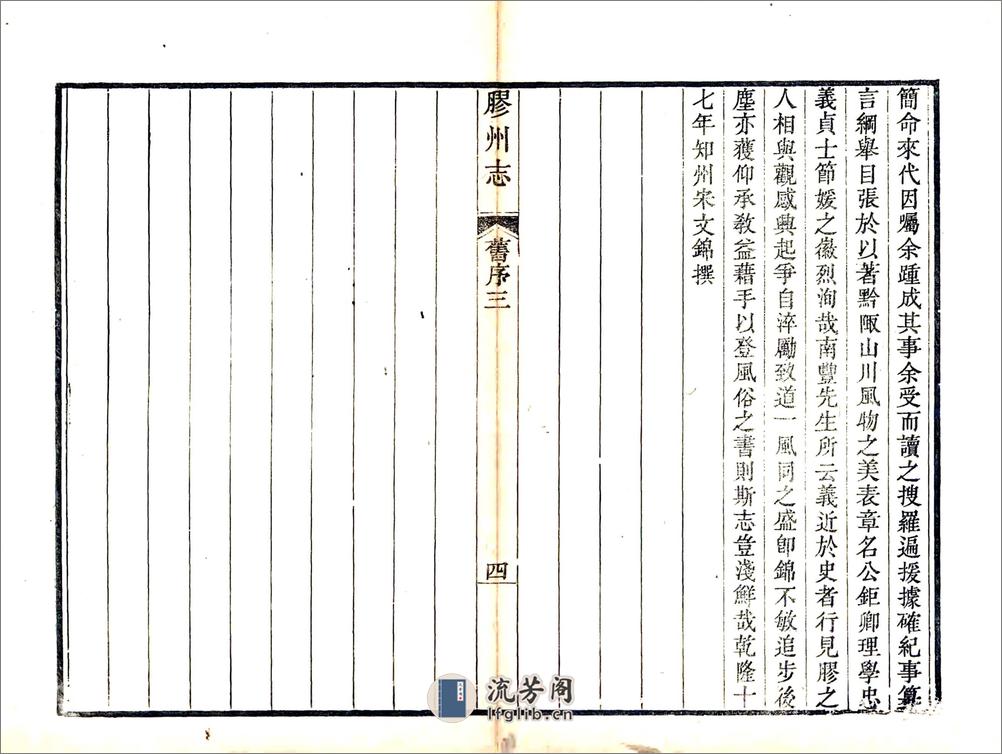 簡命來代因囑余踵成其事余受而讀之搜羅遍援據確紀事
言綱舉目張於以著黔陬山川風物之美表章名公鉅卿理學忠
義貞士節媛之徽烈洵哉南豐先生所云義近於史者行見膠之
人相與觀感興起爭自淬勵致道一風同之盛卽錦不敏追步後
塵亦獲仰承敎益藉手以登風俗之書則斯志豈淺鮮哉乾隆十
七年知州宋文錦撰
膠州志
舊序三
四
流芳阁
lfglib.cn